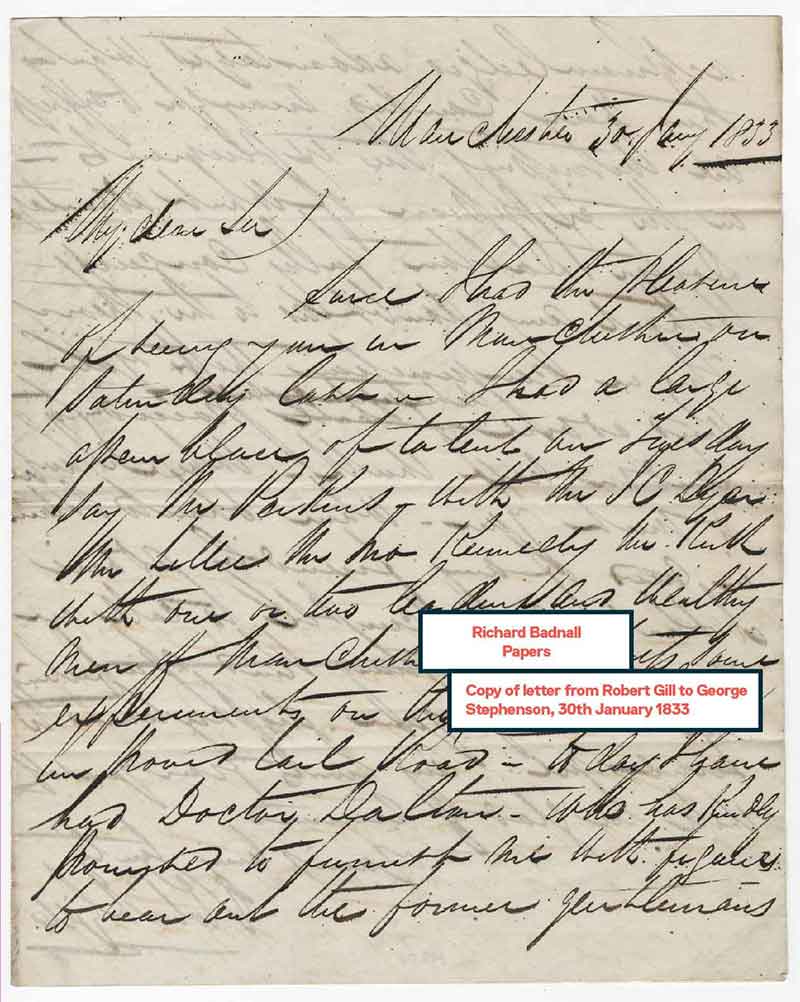 Manchester 30 Jany 1833
My dear Sir)
Since I had the pleasure
of seeing you in Manchester on
Saturday last – I had a large
assemblage of talent on Tuesday
say Mr Parkins – with Mr J C Dyer
Mr Lillie Mr Jno Kennedy Mr
with one or two wealthy
men of
Richard Badnall
Papers
some
Copy of letter from Robert Gill to George
Stephenson, 30th January 1833
experiments on
improved Rail Road – to day I have
had Doctor Dalton – who has kindly
promised to furnish me with figures
to bear out the former gentlemans